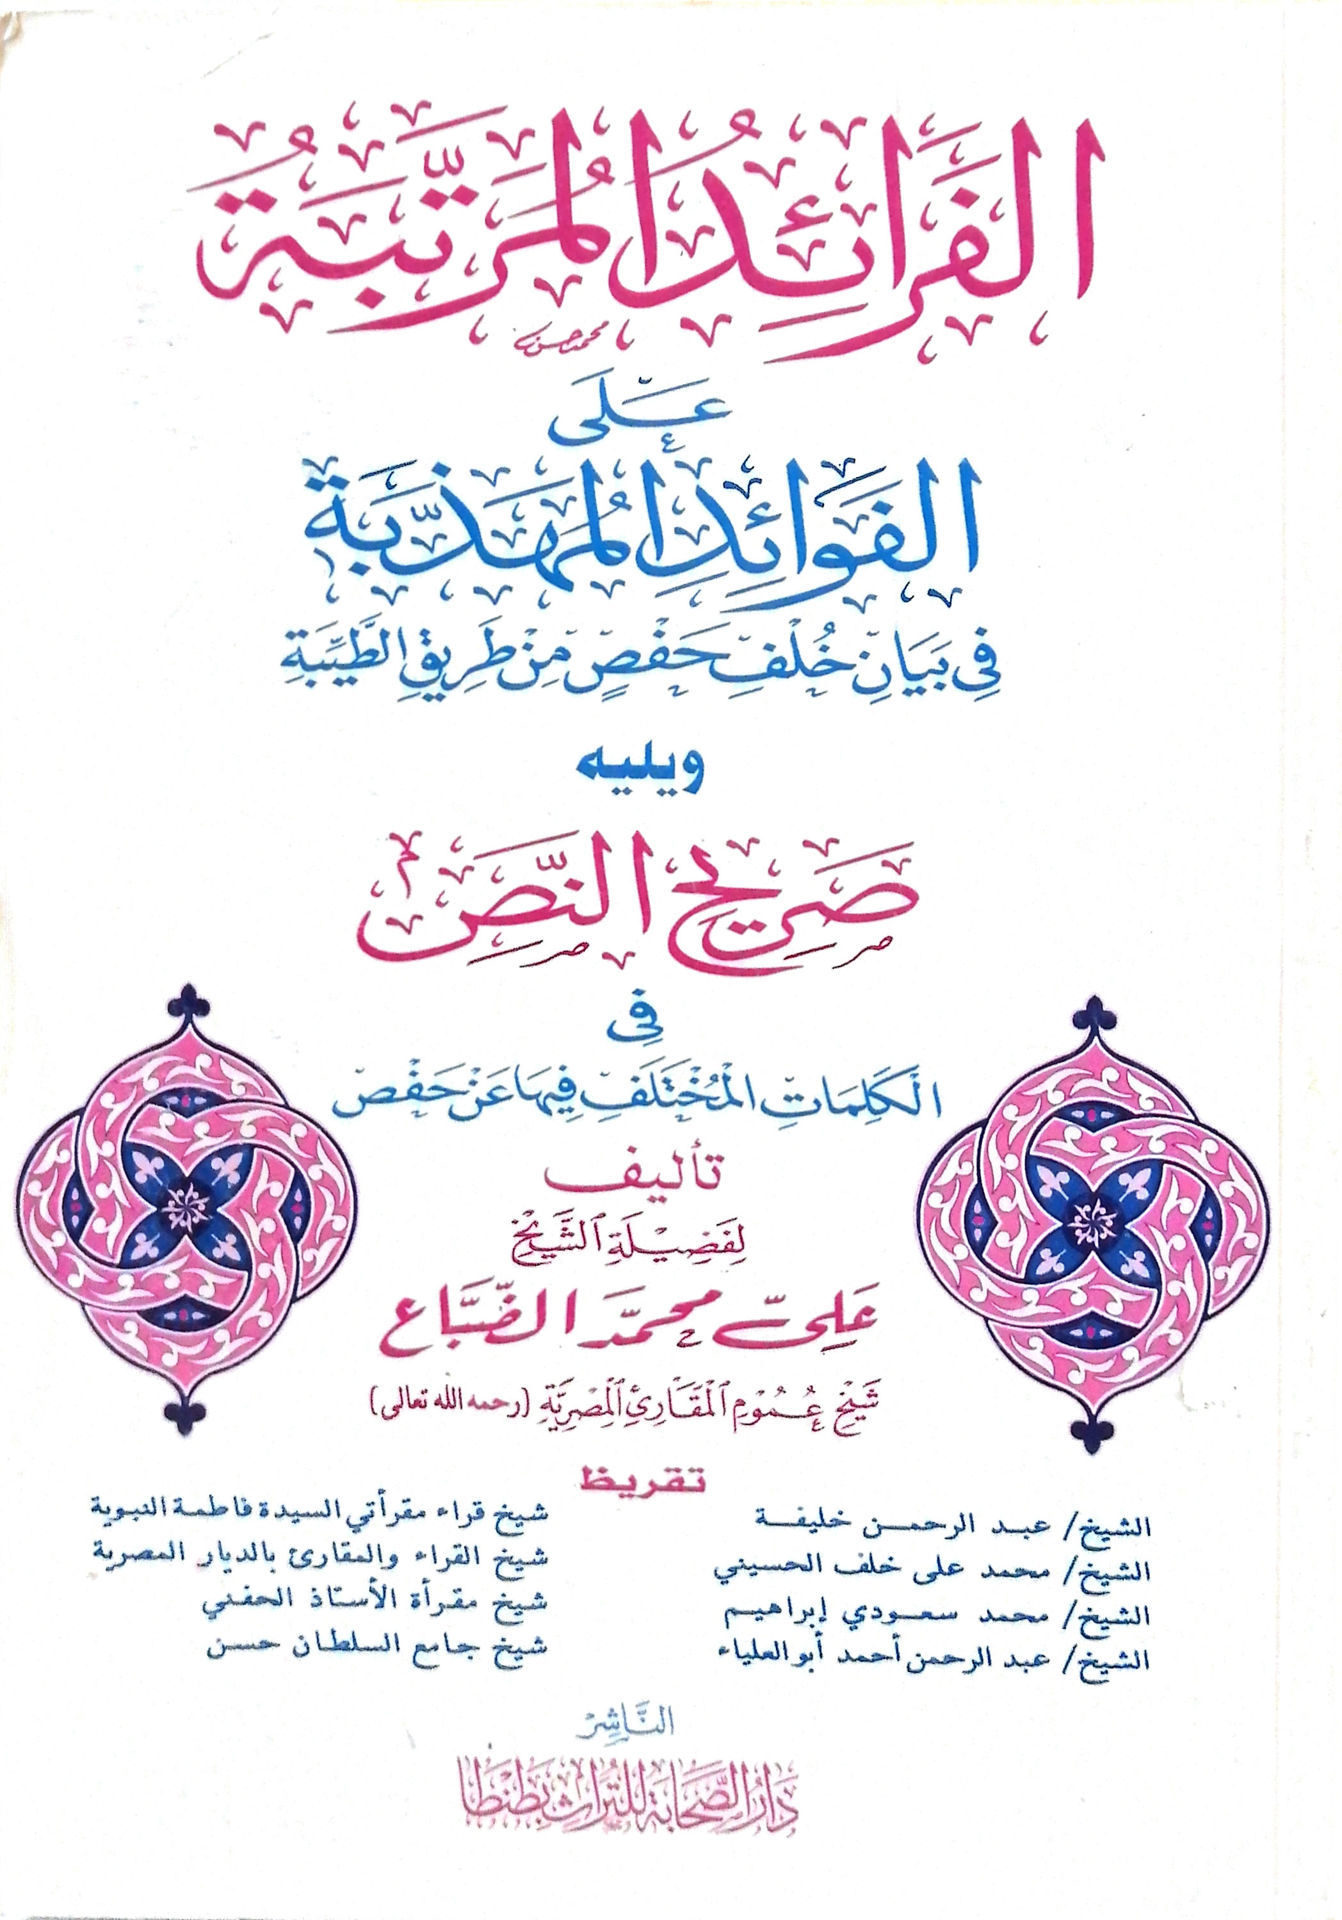 الفَرَائِدُ المُرَتَّبَةُ
محمد حسن
عَلَى
الفَوَائِدِ المُهَذَّبَة
فِي بَيَانِ خُلْفِ حَفْصٍ مِنْ طَرِيقِ الطَّيِّبَةِ
ويليه
صَرِيحُ النَّصِّ
فِي
الكَلِمَاتِ المُخْتَلَفِ فِيهَا عَنْ حَفْص
تأليف
لِفَضِيلَةِ الشَّيْخِ
عَلِيّ محمَّد الضَّبَّاع
شَيْخِ عُمُومِ المَقَارِئِ المِصْرِيَّةِ (رحمه الله تعالى)
تقريظ
الشيخ/ عبد الرحمن خليفة شيخ قراء مقرأتي السيدة فاطمة النبوية
الشيخ/ محمد على خلف الحسيني شيخ القراء والمقارئ بالديار المصرية
الشيخ/ محمد سعودي إبراهيم شيخ مقرأة الأستاذ الحفني
الشيخ/ عبد الرحمن أحمد أبو العلياء شيخ جامع السلطان حسن
النَّاشِرُ
دَارُ الصَّحَابَةِ لِلتُّرَاثِ بِطَنْطَا